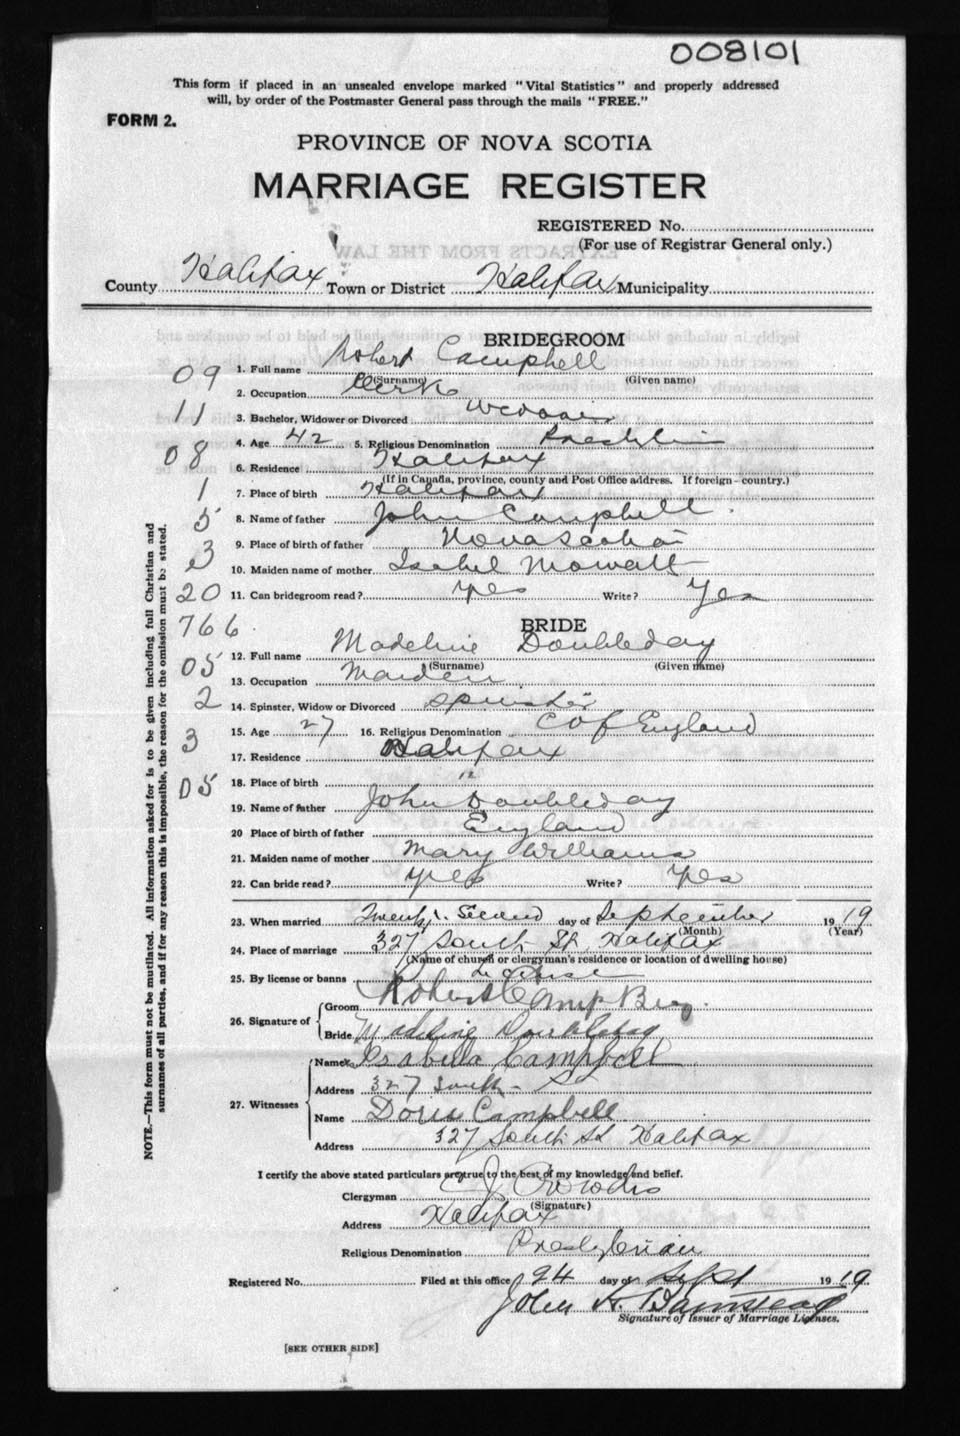 008101
This form if placed in an unsealed envelope marked "Vital Statistics" and properly addressed
will, by order of the Postmaster General pass through the mails "FREE."
FORM 2.
PROVINCE OF NOVA SCOTIA
MARRIAGE REGISTER
REGISTERED No.
(For use of Registrar General only.)
EXTRACTS FROM THE LAW
County Halifax Town or District Halifax Municipality
BRIDEGROOM
09
1. Full name Robert Campbell
(Surname) (Given name)
2. Occupation Clerk
11
3. Bachelor, Widower or Divorced
4. Age 42 5. Religious Denomination
08
6. Residence Halifax
(If in Canada, province, county and Post Office address. If foreign—country.)
1
7. Place of birth Halifax
5
8. Name of father John Campbell
3
9. Place of birth of father Nova Scotia
10. Maiden name of mother Isabel Mowatt
20
11. Can bridegroom read? Yes Write? Yes
766
BRIDE
12. Full name Madeline Doubleday
(Surname) (Given name)
05
13. Occupation Maiden
2
14. Spinster, Widow or Divorced Spinster
15. Age 27 16. Religious Denomination C of England
3
17. Residence Halifax
05
18. Place of birth "
19. Name of father John Doubleday
20 Place of birth of father England
21. Maiden name of mother Mary Williams
22. Can bride read? Yes Write? Yes
23. When married Twenty Second day of September 1919
(Month) (Year)
24. Place of marriage 327 South St. Halifax
(Name of church or clergyman's residence or location of dwelling house)
25. By license or banns License
26. Signature of Groom Robert Campbell
Bride Madeline Doubleday
27. Witnesses Name Isabella Campbell
Address 327 South St
Name Doris Campbell
Address 327 South St Halifax
I certify the above stated particulars are true to the best of my knowledge and belief.
Clergyman J
(Signature)
Address Halifax
Religious Denomination Presbyterian
Registered No. Filed at this office 24 day of Sept 1919
John H. Barnstead
Signature of Issuer of Marriage Licenses.
[SEE OTHER SIDE]
NOTE.—This form must not be mutilated. All information asked for is to be given including full Christian and
surnames of all parties, and if for any reason this is impossible, the reason for the omission must be stated.